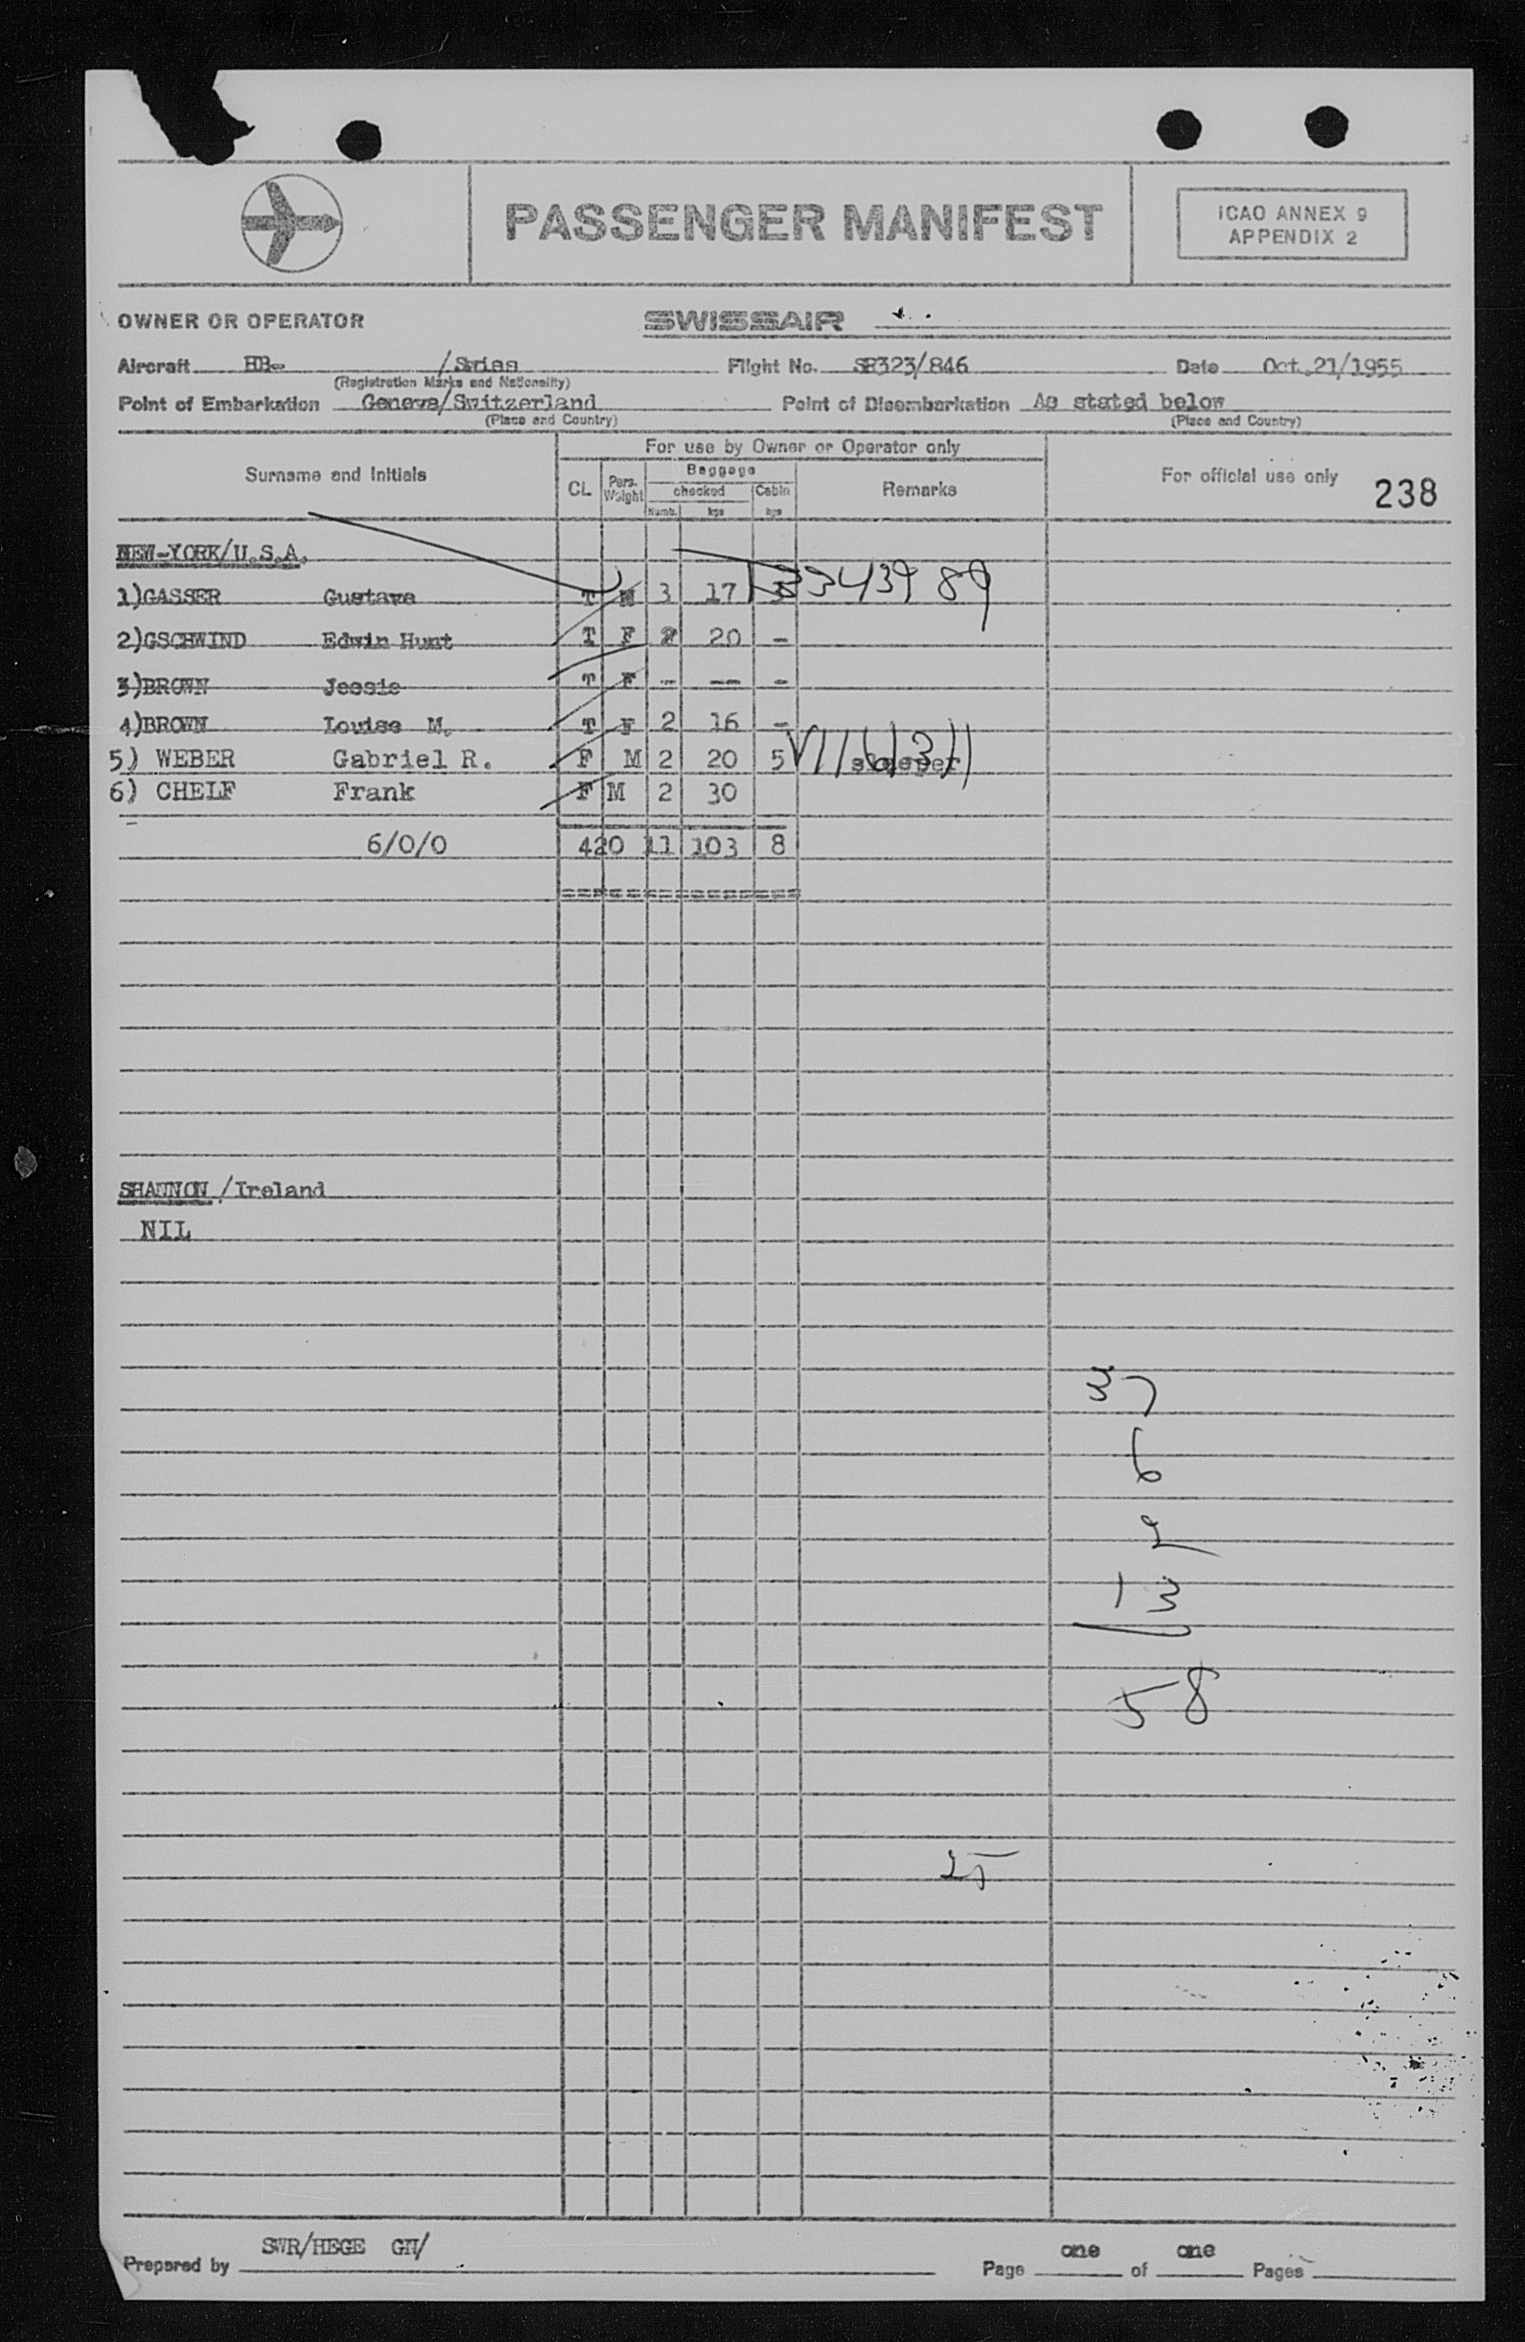 PASSENGER MANIFEST
ICAO ANNEX 9
APPENDIX 2
OWNER OR OPERATOR SWISSAIR
Aircraft HB- /Swiss Flight No. SR323/846 Date Oct.21/1955
(Registration Marks and Nationality)
Point of Embarkation Geneva/Switzerland Point of Disembarkation As stated below
(Place and Country) (Place and Country)
Surname and Initials For use by Owner or Operator only For official use only
CL Pers. Weight Baggage checked Cabin Remarks 238
Numb. kgs kgs
NEW-YORK/U.S.A.
1)GASSER Gustave T M 3 17 3
2)GSCHWIND Edwin Hunt T F 2 20 -
3)BROWN Jessie T F - -- -
4)BROWN Louise M. T F 2 16 -
5) WEBER Gabriel R. F M 2 20 5 sleeper
6) CHELF Frank F M 2 30
6/0/0 420 11 103 8
=================
SHANNON/Ireland
NIL
58
25
SWR/HEGE GN/
Prepared by Page one of one Pages